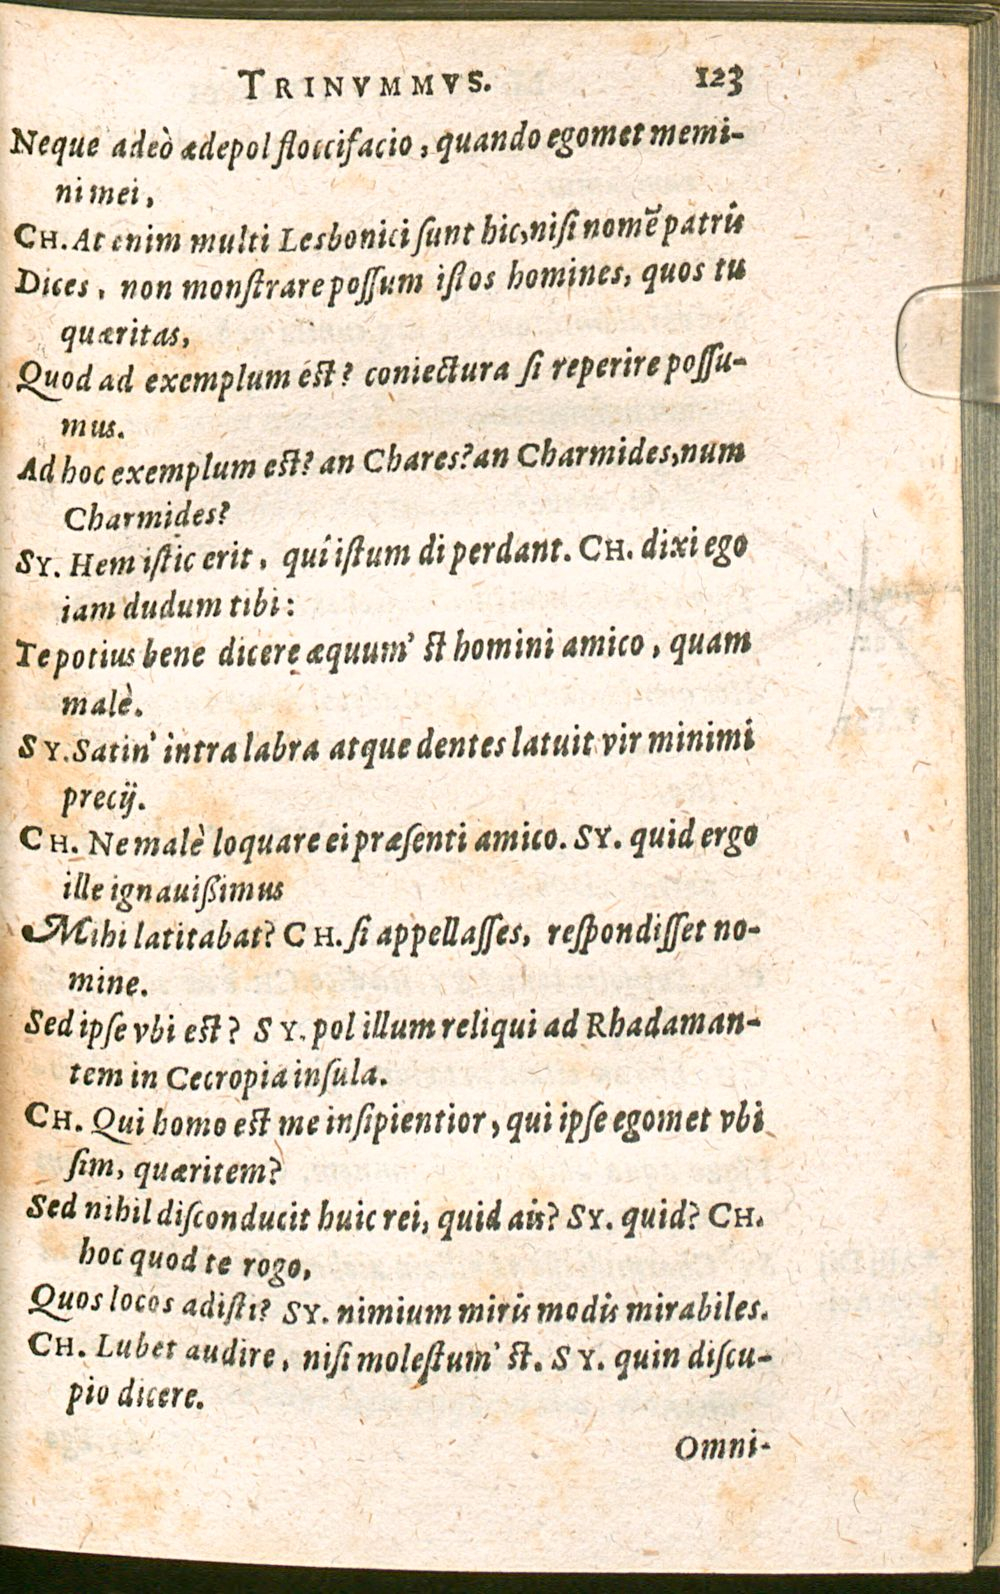 TRINVMMVS. 123
Neque adeò ædepol floccifacio, quando egomet memi-
ni mei,
CH. At enim multi Lesbonici sunt hic, nisi nomē patris
Dices, non monstrare possum istos homines, quos tu
quæritas,
Quod ad exemplum est? coniectura si reperire possu-
mus.
Ad hoc exemplum est? an Chares? an Charmides, num
Charmides?
SY. Hem istic erit, quî istum di perdant. CH. dixi ego
iam dudum tibi:
Te potius bene dicere æquum' st homini amico, quam
malè.
SY. Satin' intra labra atque dentes latuit vir minimi
precij.
CH. Ne malè loquare ei præsenti amico. SY. quid ergo
ille ignauißimus
Mihi latitabat? CH. si appellasses, respondisset no-
mine.
Sed ipse vbi est? SY. pol illum reliqui ad Rhadaman-
tem in Cecropia insula.
CH. Qui homo est me insipientior, qui ipse egomet vbi
sim, quæritem?
Sed nihil disconducit huic rei, quid ais? SY. quid? CH.
hoc quod te rogo,
Quos locos adisti? SY. nimium miris modis mirabiles.
CH. Lubet audire, nisi molestum' st. SY. quin discu-
pio dicere.
Omni-